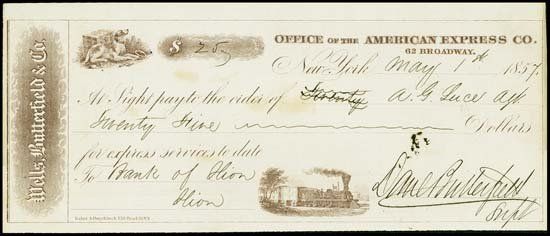 Wells, Butterfield & Co.
$ 25
OFFICE OF THE AMERICAN EXPRESS CO.
62 BROADWAY.
New York May 1st 1857
At Sight pay to the order of Twenty A. G. Luce agt.
Twenty Five Dollars
for express services to date
To Bank of Ilion
Ilion
Danl Butterfield
Supt